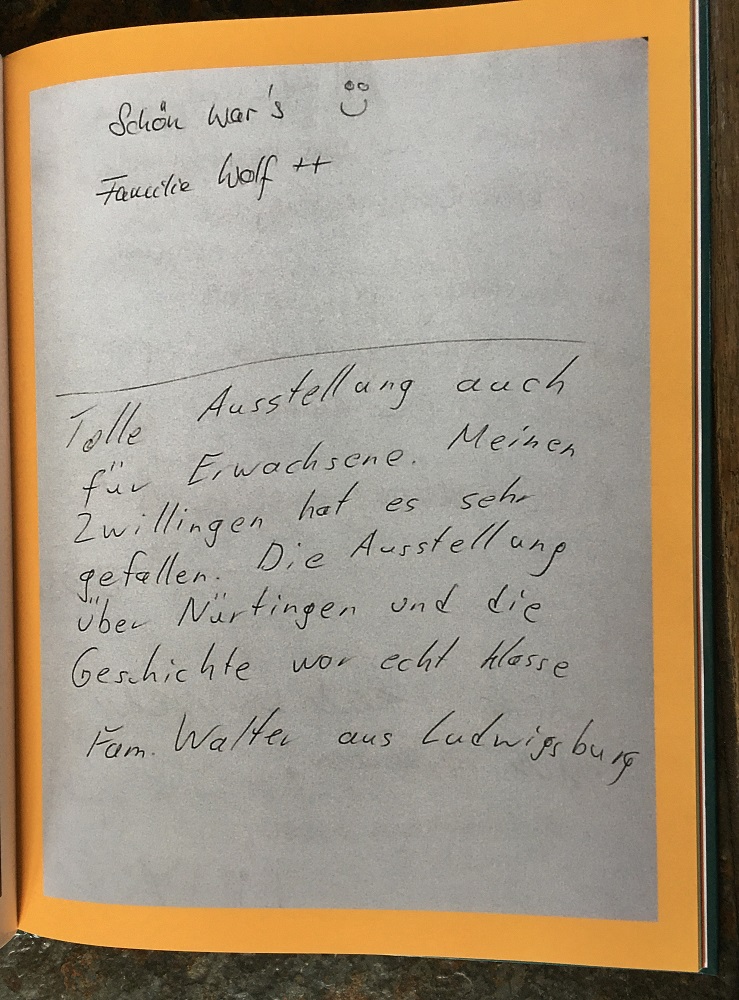 Schön war's
Familie Wolf ++
Tolle Ausstellung auch
für Erwachsene. Meinen
Zwillingen hat es sehr
gefallen. Die Ausstellung
über Nürtingen und die
Geschichte war echt klasse
Fam. Walter aus Ludwigsburg